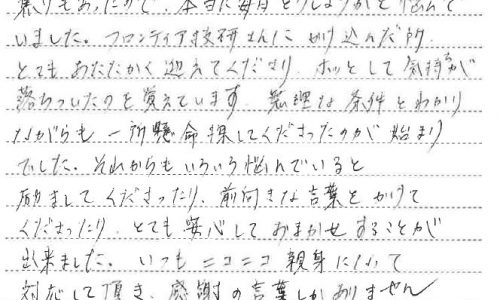 焦りもあったので、本当に毎日どうしようかと悩んで
いました。フロンティア技研さんにかけ込んだ時
とてもあたたかく迎えてくださり ホッとして気持ちが
落ちついたのを覚えています。無理な条件とわかり
ながらも一所懸命探してくださったのが始まり
でした。それからもいろいろ悩んでいると
励ましてくださったり、前向きな言葉をかけて
くださったり、とても安心しておまかせすることが
出来ました。いつもニコニコ親身になって
対応して頂き、感謝の言葉しかありません